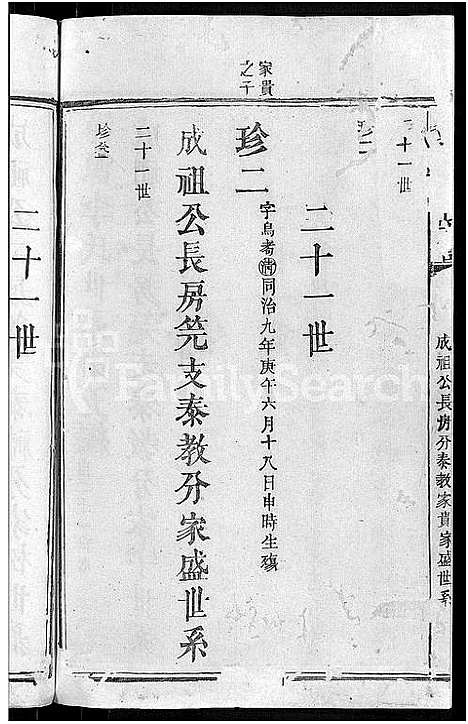 成祖公長房分泰教家貴家盛世系
二十一世
珍二
二十一世
家貴
之子
珍二
字鳥耆清同治九年庚午六月十八日申時生殤
成祖公長房筦支泰教分家盛世系
二十一世
珍叁
二十一世
FamilySearch